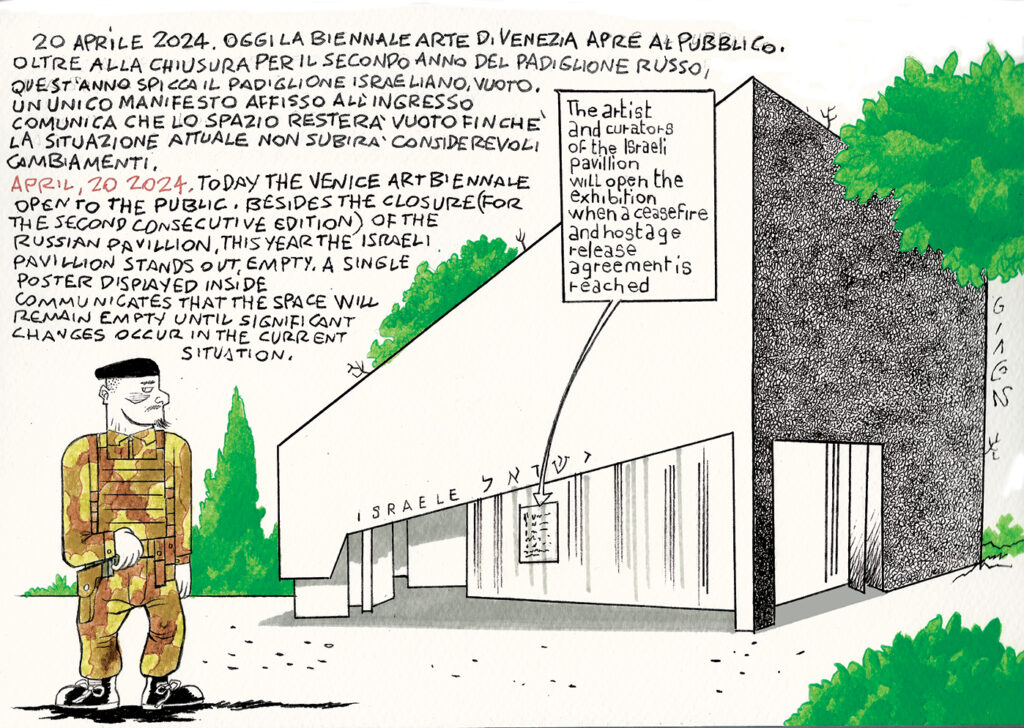 20 APRILE 2024. OGGI LA BIENNALE ARTE DI VENEZIA APRE AL PUBBLICO.
OLTRE ALLA CHIUSURA PER IL SECONDO ANNO DEL PADIGLIONE RUSSO,
QUEST'ANNO SPICCA IL PADIGLIONE ISRAELIANO, VUOTO.
UN UNICO MANIFESTO AFFISSO ALL'INGRESSO
COMUNICA CHE LO SPAZIO RESTERA' VUOTO FINCHE'
LA SITUAZIONE ATTUALE NON SUBIRA' CONSIDEREVOLI
CAMBIAMENTI.
APRIL, 20 2024. TODAY THE VENICE ART BIENNALE
OPEN TO THE PUBLIC. BESIDES THE CLOSURE (FOR
THE SECOND CONSECUTIVE EDITION) OF THE
RUSSIAN PAVILLION, THIS YEAR THE ISRAELI
PAVILLION STANDS OUT, EMPTY. A SINGLE
POSTER DISPLAYED INSIDE
COMMUNICATES THAT THE SPACE WILL
REMAIN EMPTY UNTIL SIGNIFICANT
CHANGES OCCUR IN THE CURRENT
SITUATION.
The artist
and curators
of the Israeli
pavillion
will open the
exhibition
when a ceasefire
and hostage
release
agreement is
reached
ISRAELE ישראל
GIACON